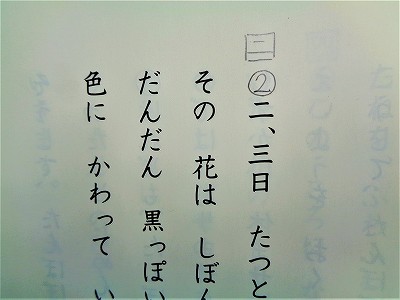 二
②二、三日 たつと
その 花は しぼん
だんだん 黒っぽい
色に かわって い